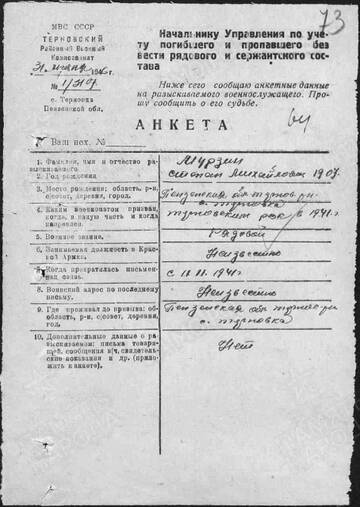 73
МВС СССР
ТЕРНОВСКИЙ
Районный Военный
Комиссариат
31 1946 г.
№ 1/3107
с. Терновка
Пензенской обл.
Начальнику Управления по учету погибшего и пропавшего без вести рядового и сержантского состава
Ниже сего сообщаю анкетные данные на разыскиваемого военнослужащего. Прошу сообщить о его судьбе.
АНКЕТА
Ваш исх. №
1. Фамилия, имя и отчество разыскиваемого
2. Год рождения
Мурзин
Степан Михайлович 1907.
3. Место рождения: область, р-н, с/совет, деревня, город.
Пензенская обл
4. Каким военкоматом призван, когда, в какую часть и когда направлен.
рвк в 1941 г.
5. Военное звание.
Рядовой
6. Занимаемая должность в Красной Армии.
Неизвестно
7. Когда прекратилась письменная связь.
с 10.11.1941 г
8. Воинский адрес по последнему письму.
Неизвестно
9. Где проживал до призыва: область, р-н, с/совет, деревня, год.
Пензенская обл
10. Дополнительные данные о разыскиваемом: письма товарищей, сообщения в/ч, свидетельские показания и др. (приложить к анкете).
Нет